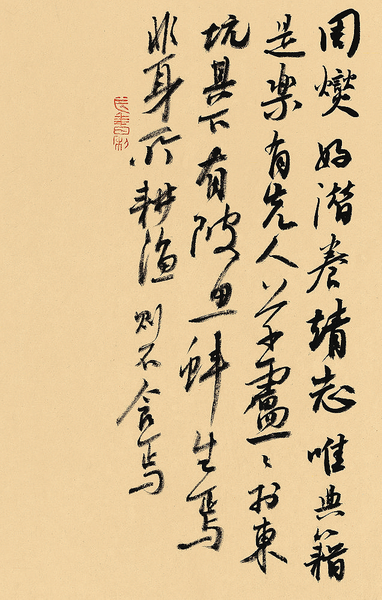 周燮好潜養靖志唯典籍
是樂有先人草廬〻於東
坑其下有陂魚蚌生焉
非身所耕漁則不食焉